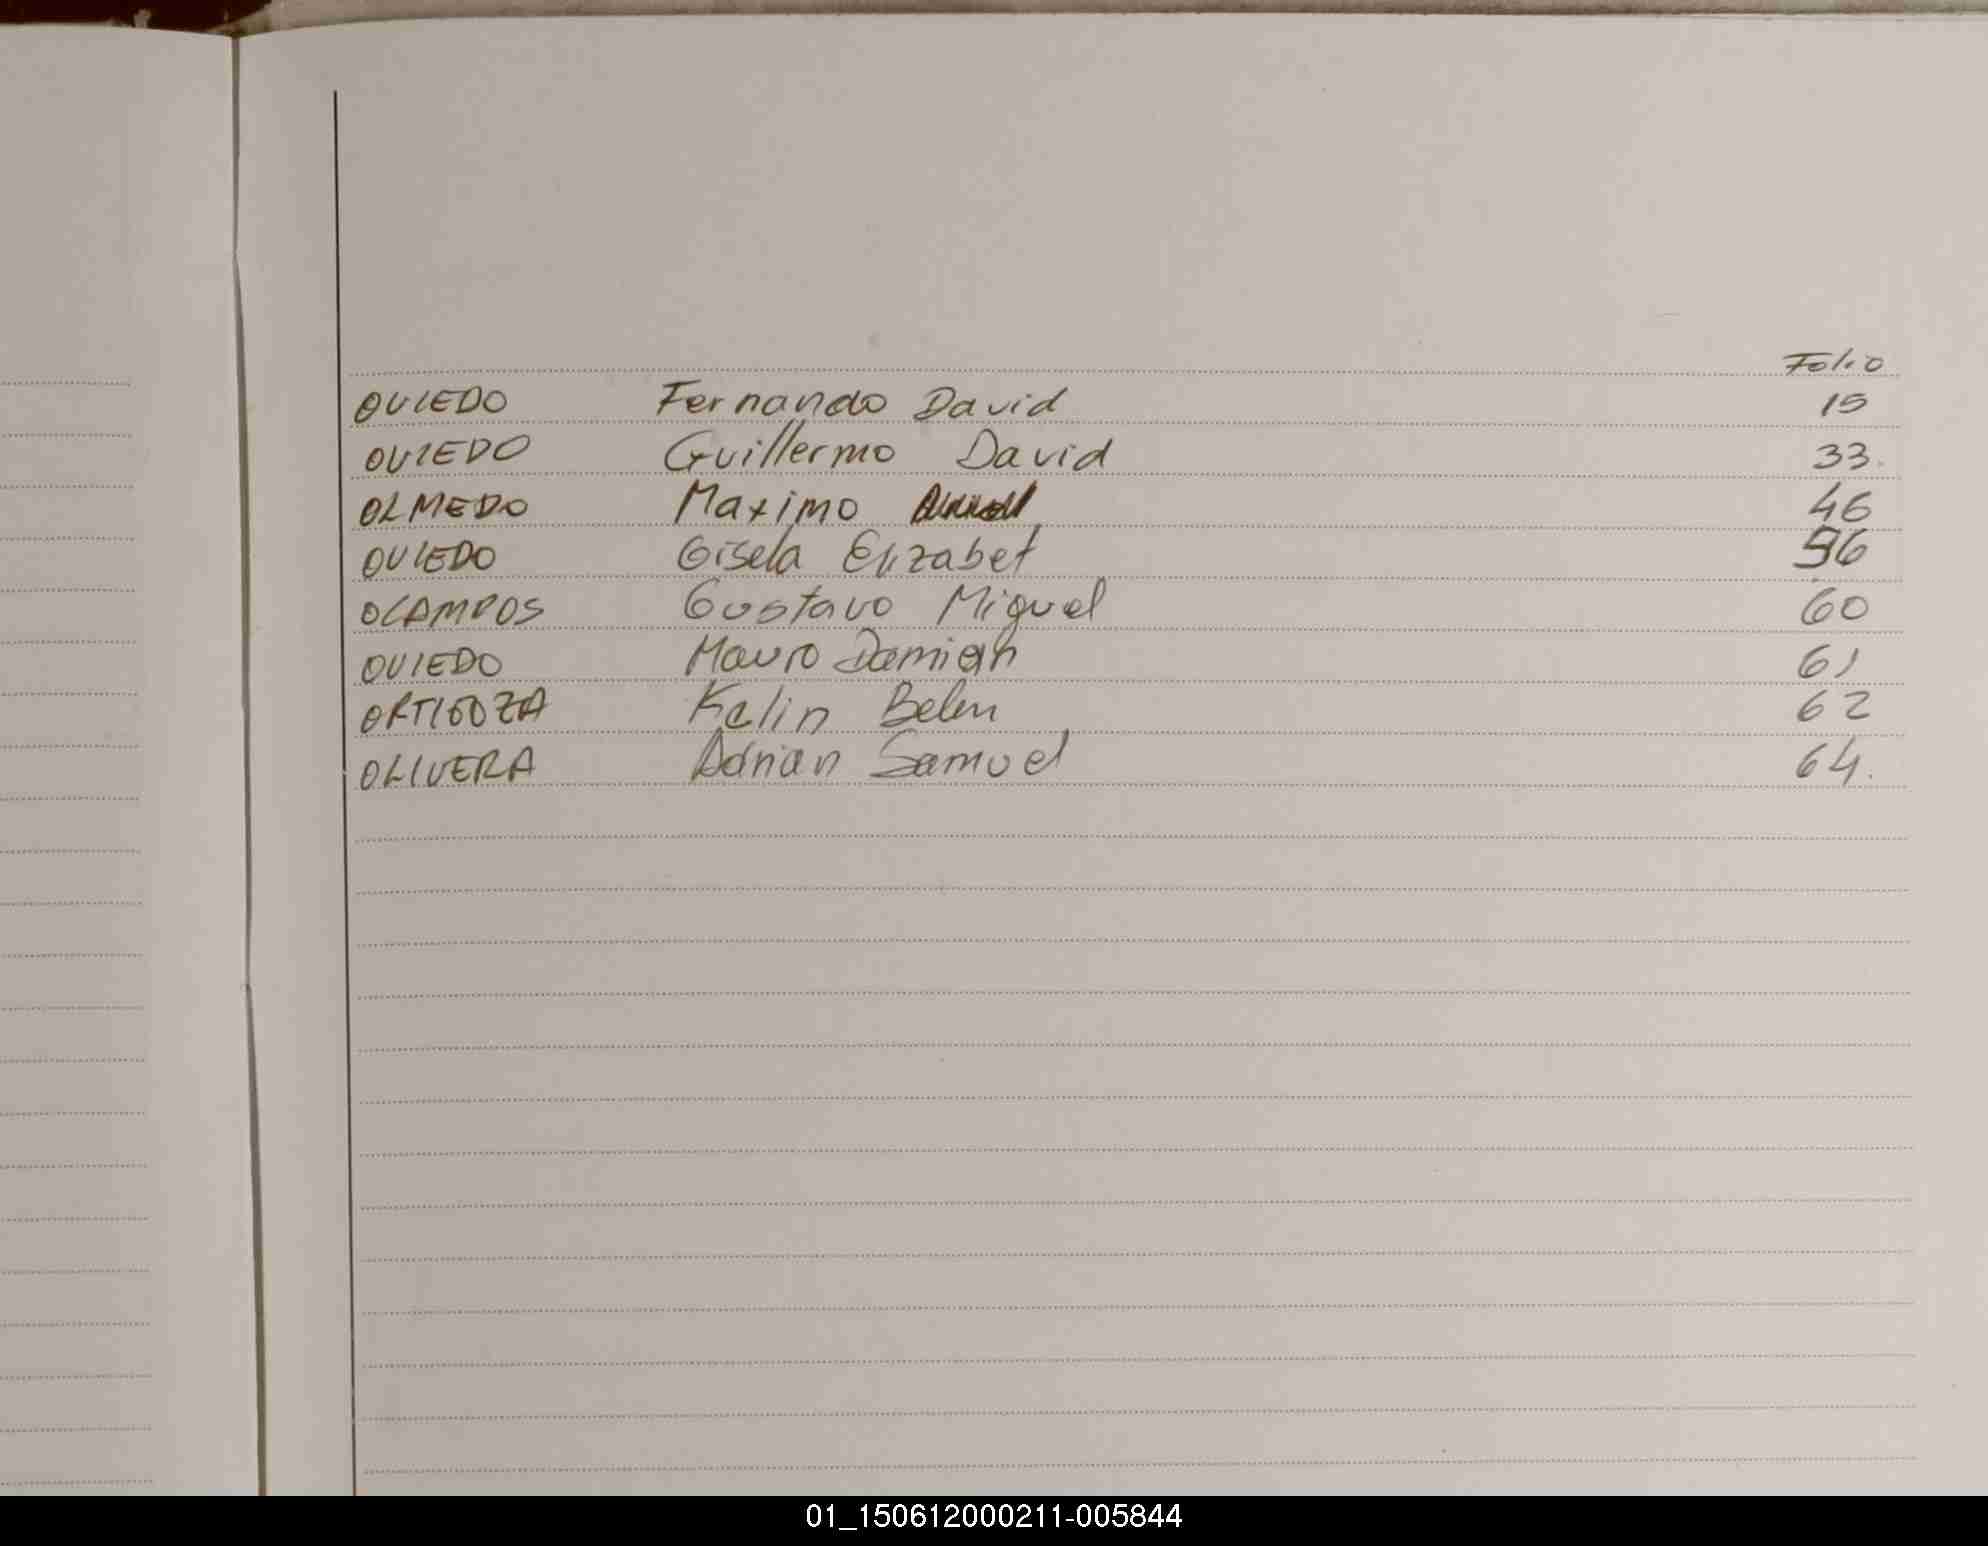 Folio
OVIEDO Fernando David 15
OVIEDO Guillermo David 33.
OLMEDO Maximo 46
OVIEDO Gisela Elizabet 56
OCAMPOS Gustavo Miguel 60
OVIEDO Mauro Damian 61
ORTIGOZA Kelin Belen 62
OLIVERA Adrian Samuel 64.
01_150612000211-005844